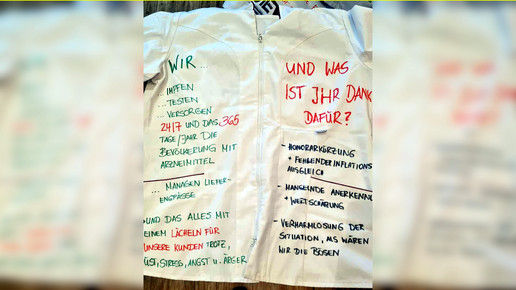 WIR ...
... IMPFEN
... TESTEN
... VERSORGEN
24/7 UND DAS 365
TAGE/JAHR DIE
BEVÖLKERUNG MIT
ARZNEIMITTEL
... MANAGEN LIEFER-
ENGPÄSSE
UND DAS ALLES MIT
EINEM LÄCHELN FÜR
UNSERE KUNDEN TROTZ
STRESS, ANGST u. ÄRGER
UND WAS
IST IHR DANK
DAFÜR?
- HONORARKÜRZUNG
+ FEHLENDER INFLATIONS
AUSGLEICH
- MANGELNDE ANERKENNU
+ WERTSCHÄTZUNG
- VERHARMLOSUNG DER
SITUATION, ALS WÄREN
WIR DIE BÖSEN